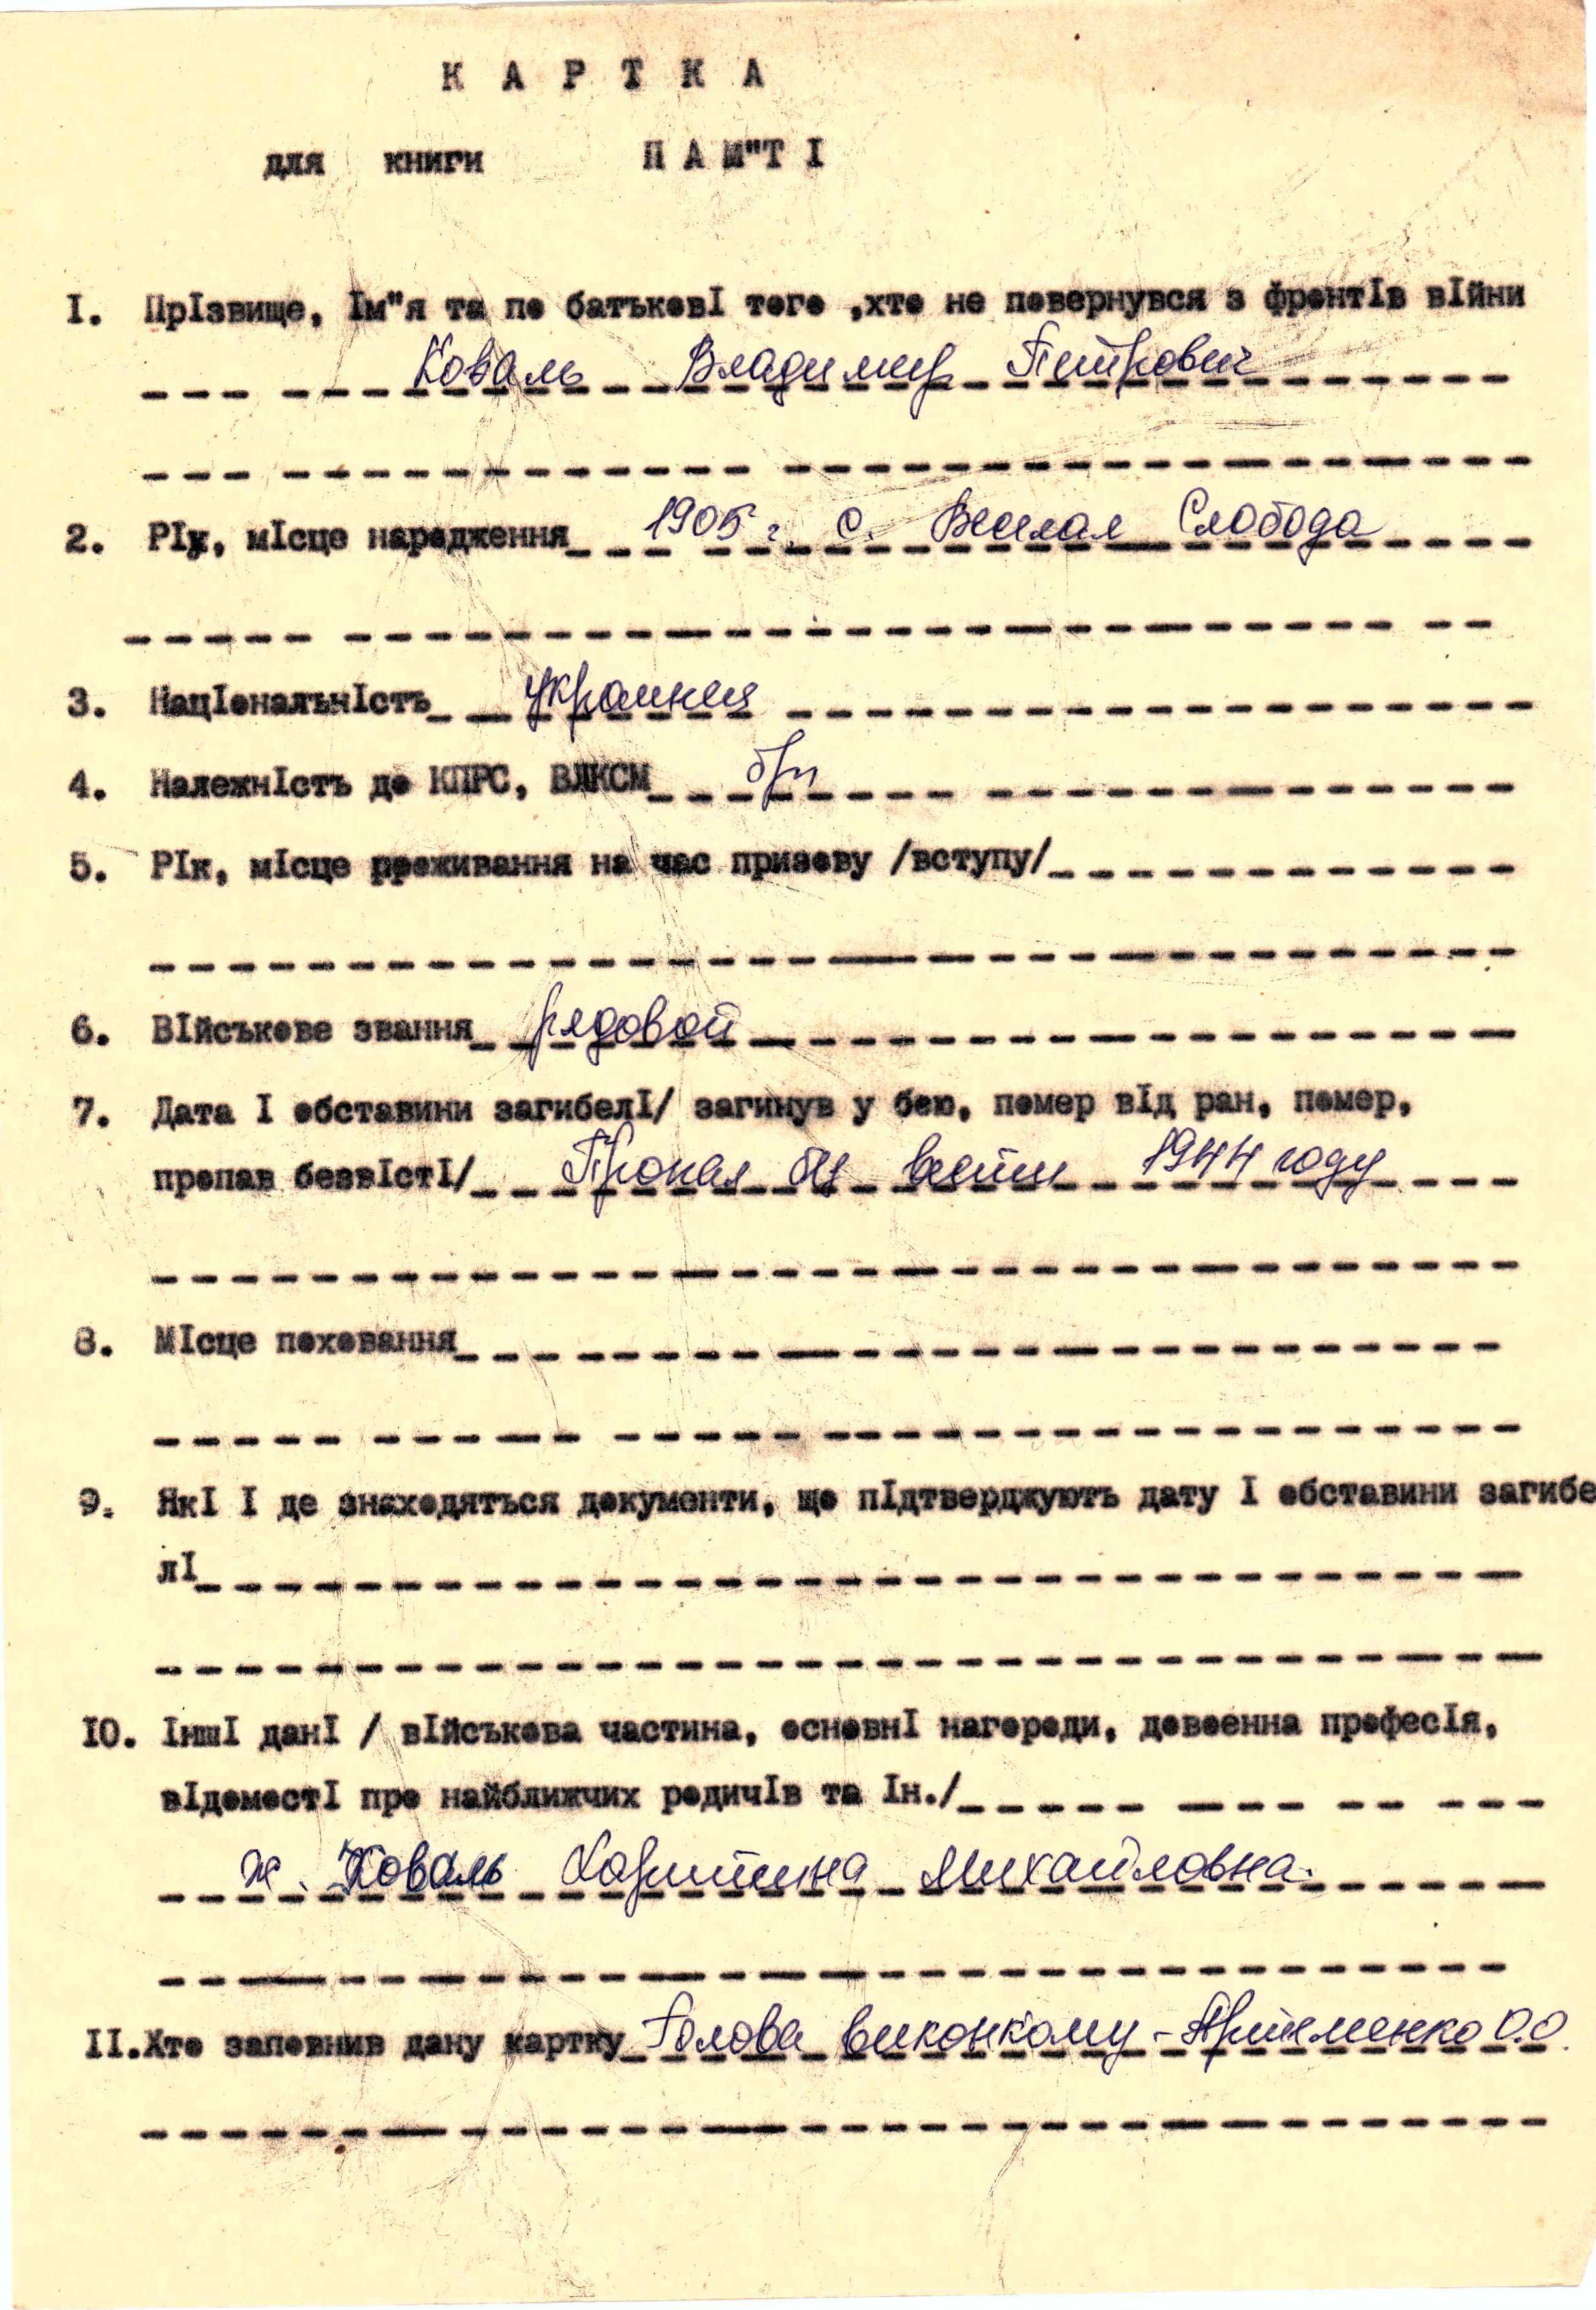 К А Р Т К А
для книги П А М"Т І
I. ПрІзвище, Ім"я та по батьковІ того ,хто не повернувся з фронтІв вІйни
Коваль Владимир Петрович
2. РІк, мІсце народження 1905 г. с. Веселая Слобода
3. НацІональнІсть украинец
4. НалежнІсть до КПРС, ВЛКСМ б/п
5. РІк, мІсце проживання на час призову /вступу/
6. ВІйськове звання рядовой
7. Дата І обставини загибелІ/ загинув у бою, помер вІд ран, помер,
пропав безвІстІ/ Пропал без вести 1944 году
8. МІсце поховання
9. ЯкІ І де знаходяться документи, що пІдтверджують дату І обставини загибе
лІ
IO. ІншІ данІ / вІйськова частина, основнІ нагороди, довоєнна професІя,
вІдомостІ про найближчих родичІв та Ін./
ж. Коваль Харитина Михайловна.
II.Хто заповнив дану картку Голова виконкому - Артеменко О.О.